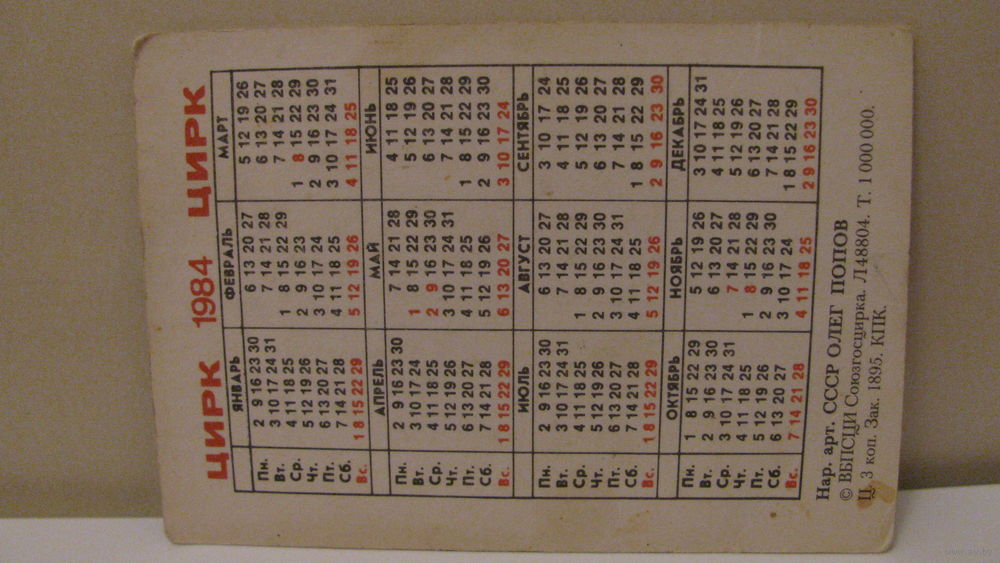 ЦИРК 1984 ЦИРК
ЯНВАРЬ ФЕВРАЛЬ МАРТ
Пн. 2 9 16 23 30 6 13 20 27 5 12 19 26
Вт. 3 10 17 24 31 7 14 21 28 6 13 20 27
Ср. 4 11 18 25 1 8 15 22 29 7 14 21 28
Чт. 5 12 19 26 2 9 16 23 1 8 15 22 29
Пт. 6 13 20 27 3 10 17 24 2 9 16 23 30
Сб. 7 14 21 28 4 11 18 25 3 10 17 24 31
Вс. 1 8 15 22 29 5 12 19 26 4 11 18 25
АПРЕЛЬ МАЙ ИЮНЬ
Пн. 2 9 16 23 30 7 14 21 28 4 11 18 25
Вт. 3 10 17 24 1 8 15 22 29 5 12 19 26
Ср. 4 11 18 25 2 9 16 23 30 6 13 20 27
Чт. 5 12 19 26 3 10 17 24 31 7 14 21 28
Пт. 6 13 20 27 4 11 18 25 1 8 15 22 29
Сб. 7 14 21 28 5 12 19 26 2 9 16 23 30
Вс. 1 8 15 22 29 6 13 20 27 3 10 17 24
ИЮЛЬ АВГУСТ СЕНТЯБРЬ
Пн. 2 9 16 23 30 6 13 20 27 3 10 17 24
Вт. 3 10 17 24 31 7 14 21 28 4 11 18 25
Ср. 4 11 18 25 1 8 15 22 29 5 12 19 26
Чт. 5 12 19 26 2 9 16 23 30 6 13 20 27
Пт. 6 13 20 27 3 10 17 24 31 7 14 21 28
Сб. 7 14 21 28 4 11 18 25 1 8 15 22 29
Вс. 1 8 15 22 29 5 12 19 26 2 9 16 23 30
ОКТЯБРЬ НОЯБРЬ ДЕКАБРЬ
Пн. 1 8 15 22 29 5 12 19 26 3 10 17 24 31
Вт. 2 9 16 23 30 6 13 20 27 4 11 18 25
Ср. 3 10 17 24 31 7 14 21 28 5 12 19 26
Чт. 4 11 18 25 1 8 15 22 29 6 13 20 27
Пт. 5 12 19 26 2 9 16 23 30 7 14 21 28
Сб. 6 13 20 27 3 10 17 24 1 8 15 22 29
Вс. 7 14 21 28 4 11 18 25 2 9 16 23 30
Нар. арт. СССР ОЛЕГ ПОПОВ
© ВБПСЦИ Союзгосцирка. Л48804. Т. 1 000 000.
Ц. 3 коп. Зак. 1895. КПК.